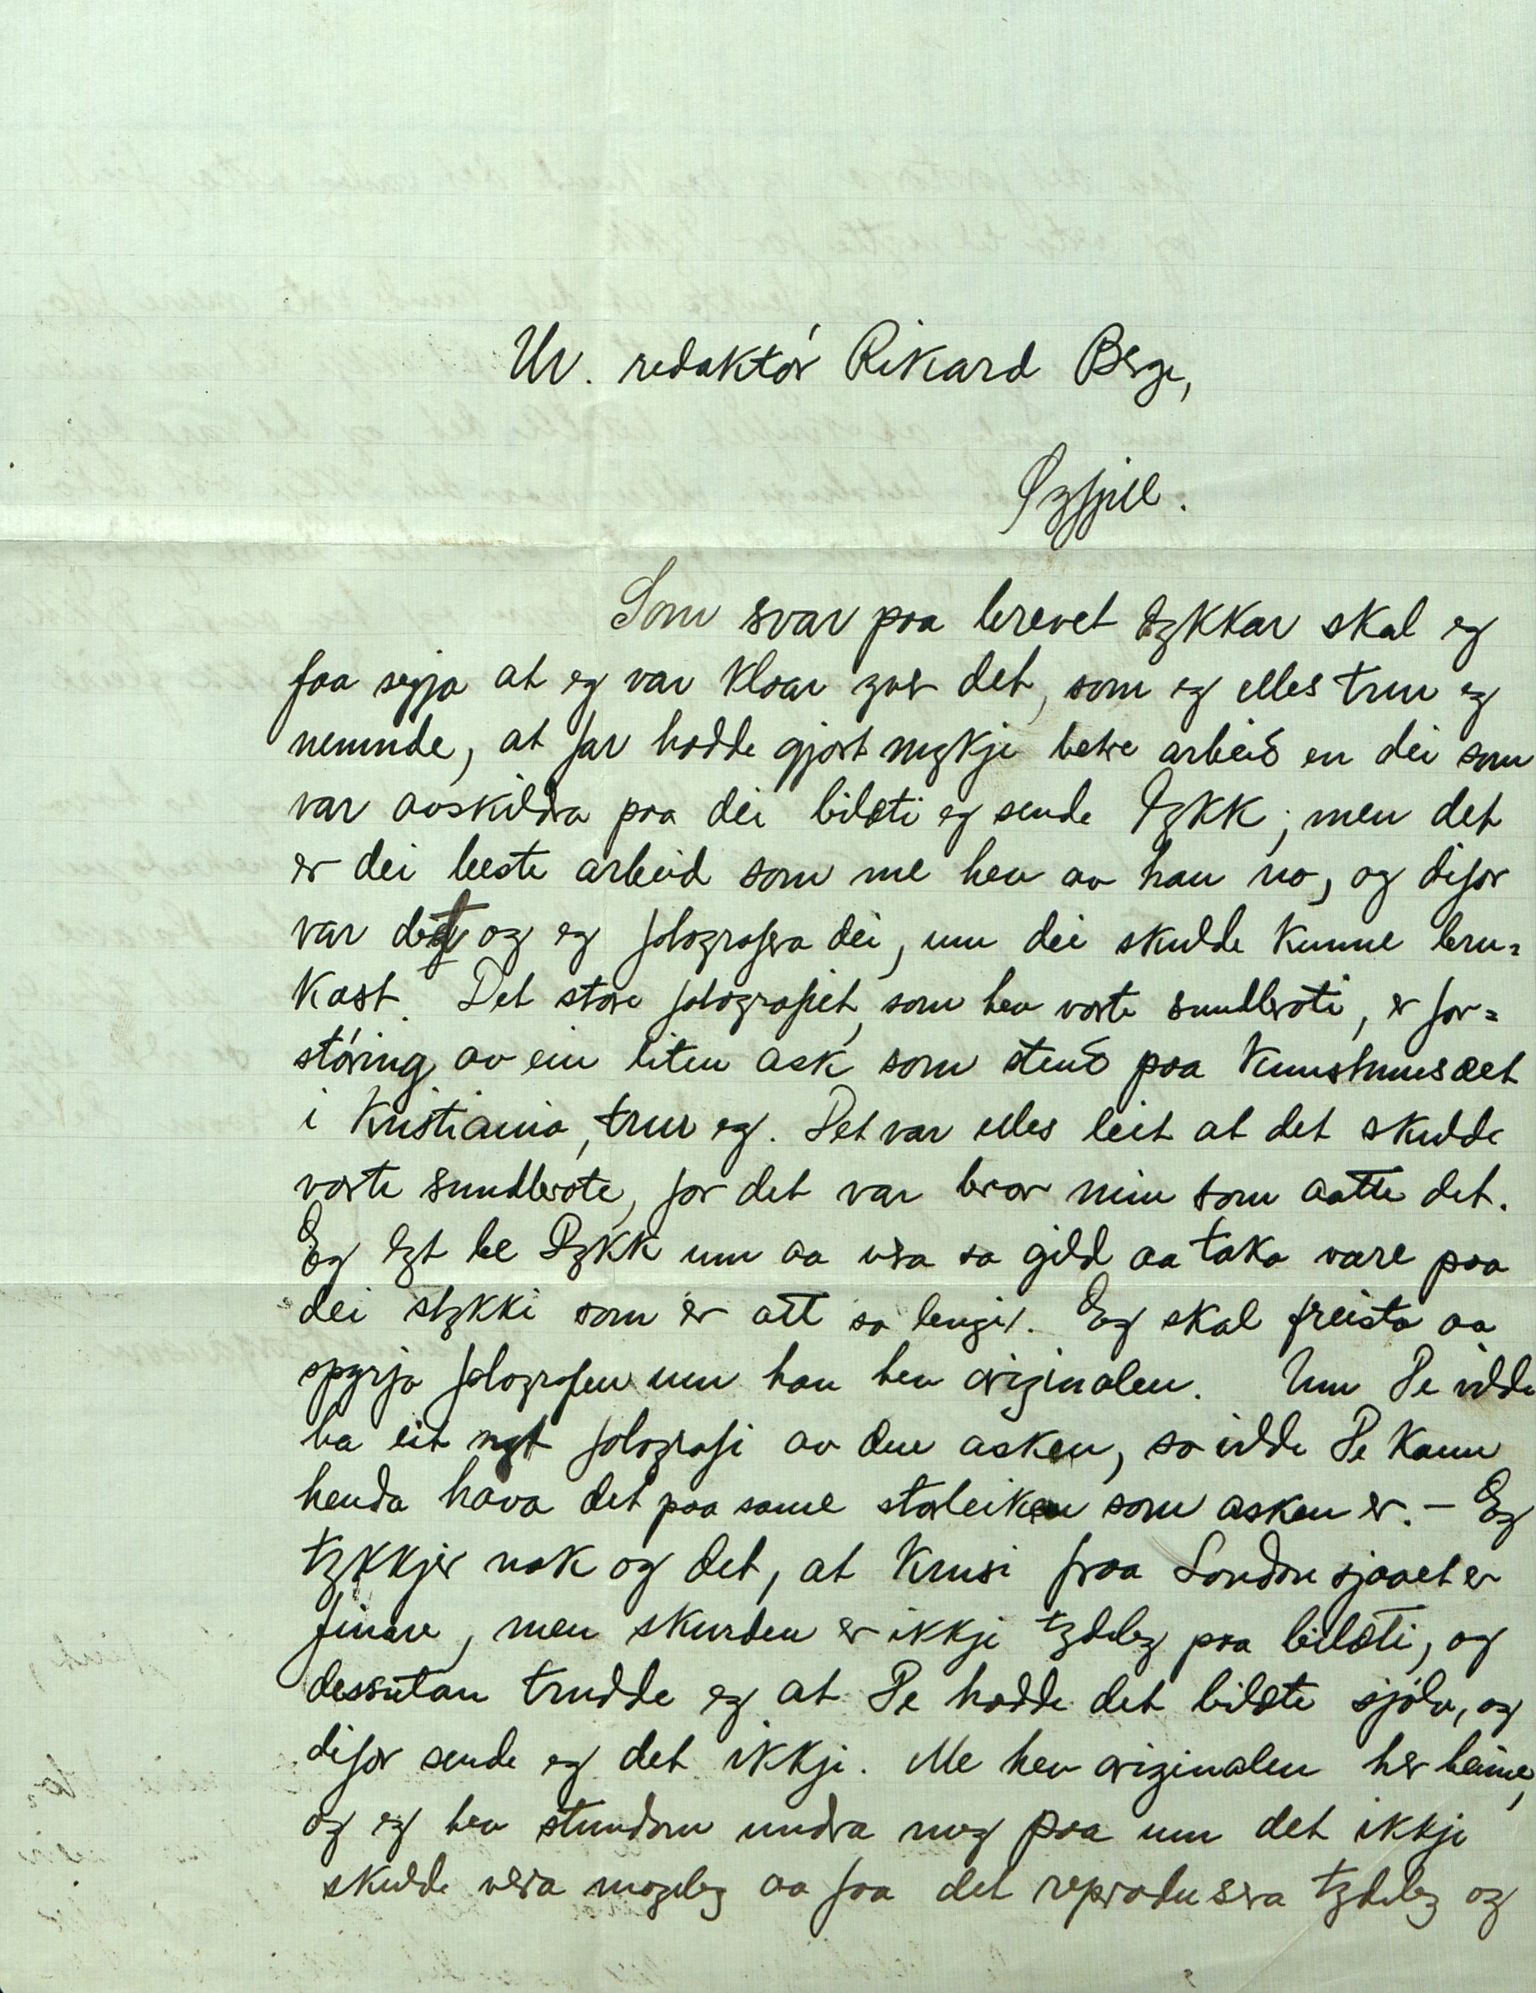 Hr. redaktør Rikard Berge,
Øyfjell.
Som svar paa brevet Dykkar skal eg
faa segja at eg var klaar yver det, som eg elles trur eg
nemnde, at far hadde gjort mykje betre arbeid en dei som
var avskildra paa dei bilæti eg sende Dykk; men det
er dei beste arbeid som me hev av han no, og difor
var det og eg fotografera dei, um dei skulde kunne bru=
kast. Det store fotografiet, som hev vorte sundbroti, er for=
støring av ein liten ask som stend paa Kunstmusæet
i Kristiania, trur eg. Det var elles leit at det skulde
vorte sundbrote, for det var bror min som aatte det.
Eg lyt be Dykk um aa vera so gild aa taka vare paa
dei stykki som er att so lengi. Eg skal freista aa
spyrja fotografen um han hev originalen. Um De vilde
ha eit nytt fotografi av den asken, so vilde De kann
henda hava det paa same storleiken som asken er. – Eg
tykkjer nok og det, at krusi fraa Londonsjaaet er
finare, men skurden er ikkje tydeleg paa bilæti, og
dessutan trudde eg at De hadde det bilæte sjølv, og
difor sende eg det ikkje. Me hev originalen her heime,
og eg hev stundom undra meg paa um det ikkje
skulde vera mogeleg aa faa det reprodusera tydeleg og